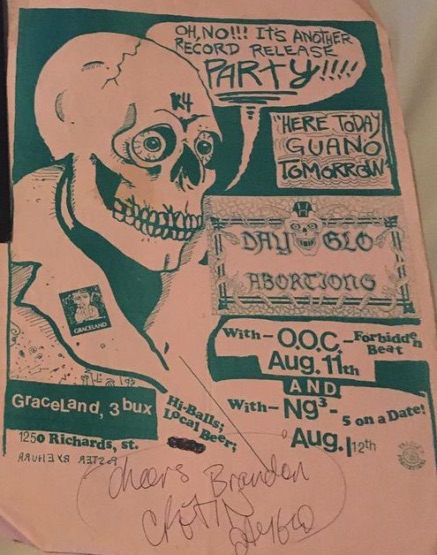 OH, NO!!! IT'S ANOTHER
RECORD RELEASE
PARTY!!!!!
K4
"HERE TODAY
GUANO
TOMORROW"
DAY GLO
ABORTIONS
GRACELAND
With - O.O.C. - Forbidden
Beat
Aug. 11th
AND
With - Ng³ -
5 on a Date!
Aug. 12th
GraceLand, 3 bux
Hi-Balls;
Local Beer;
1250 Richards, st.
Cheers Brandon